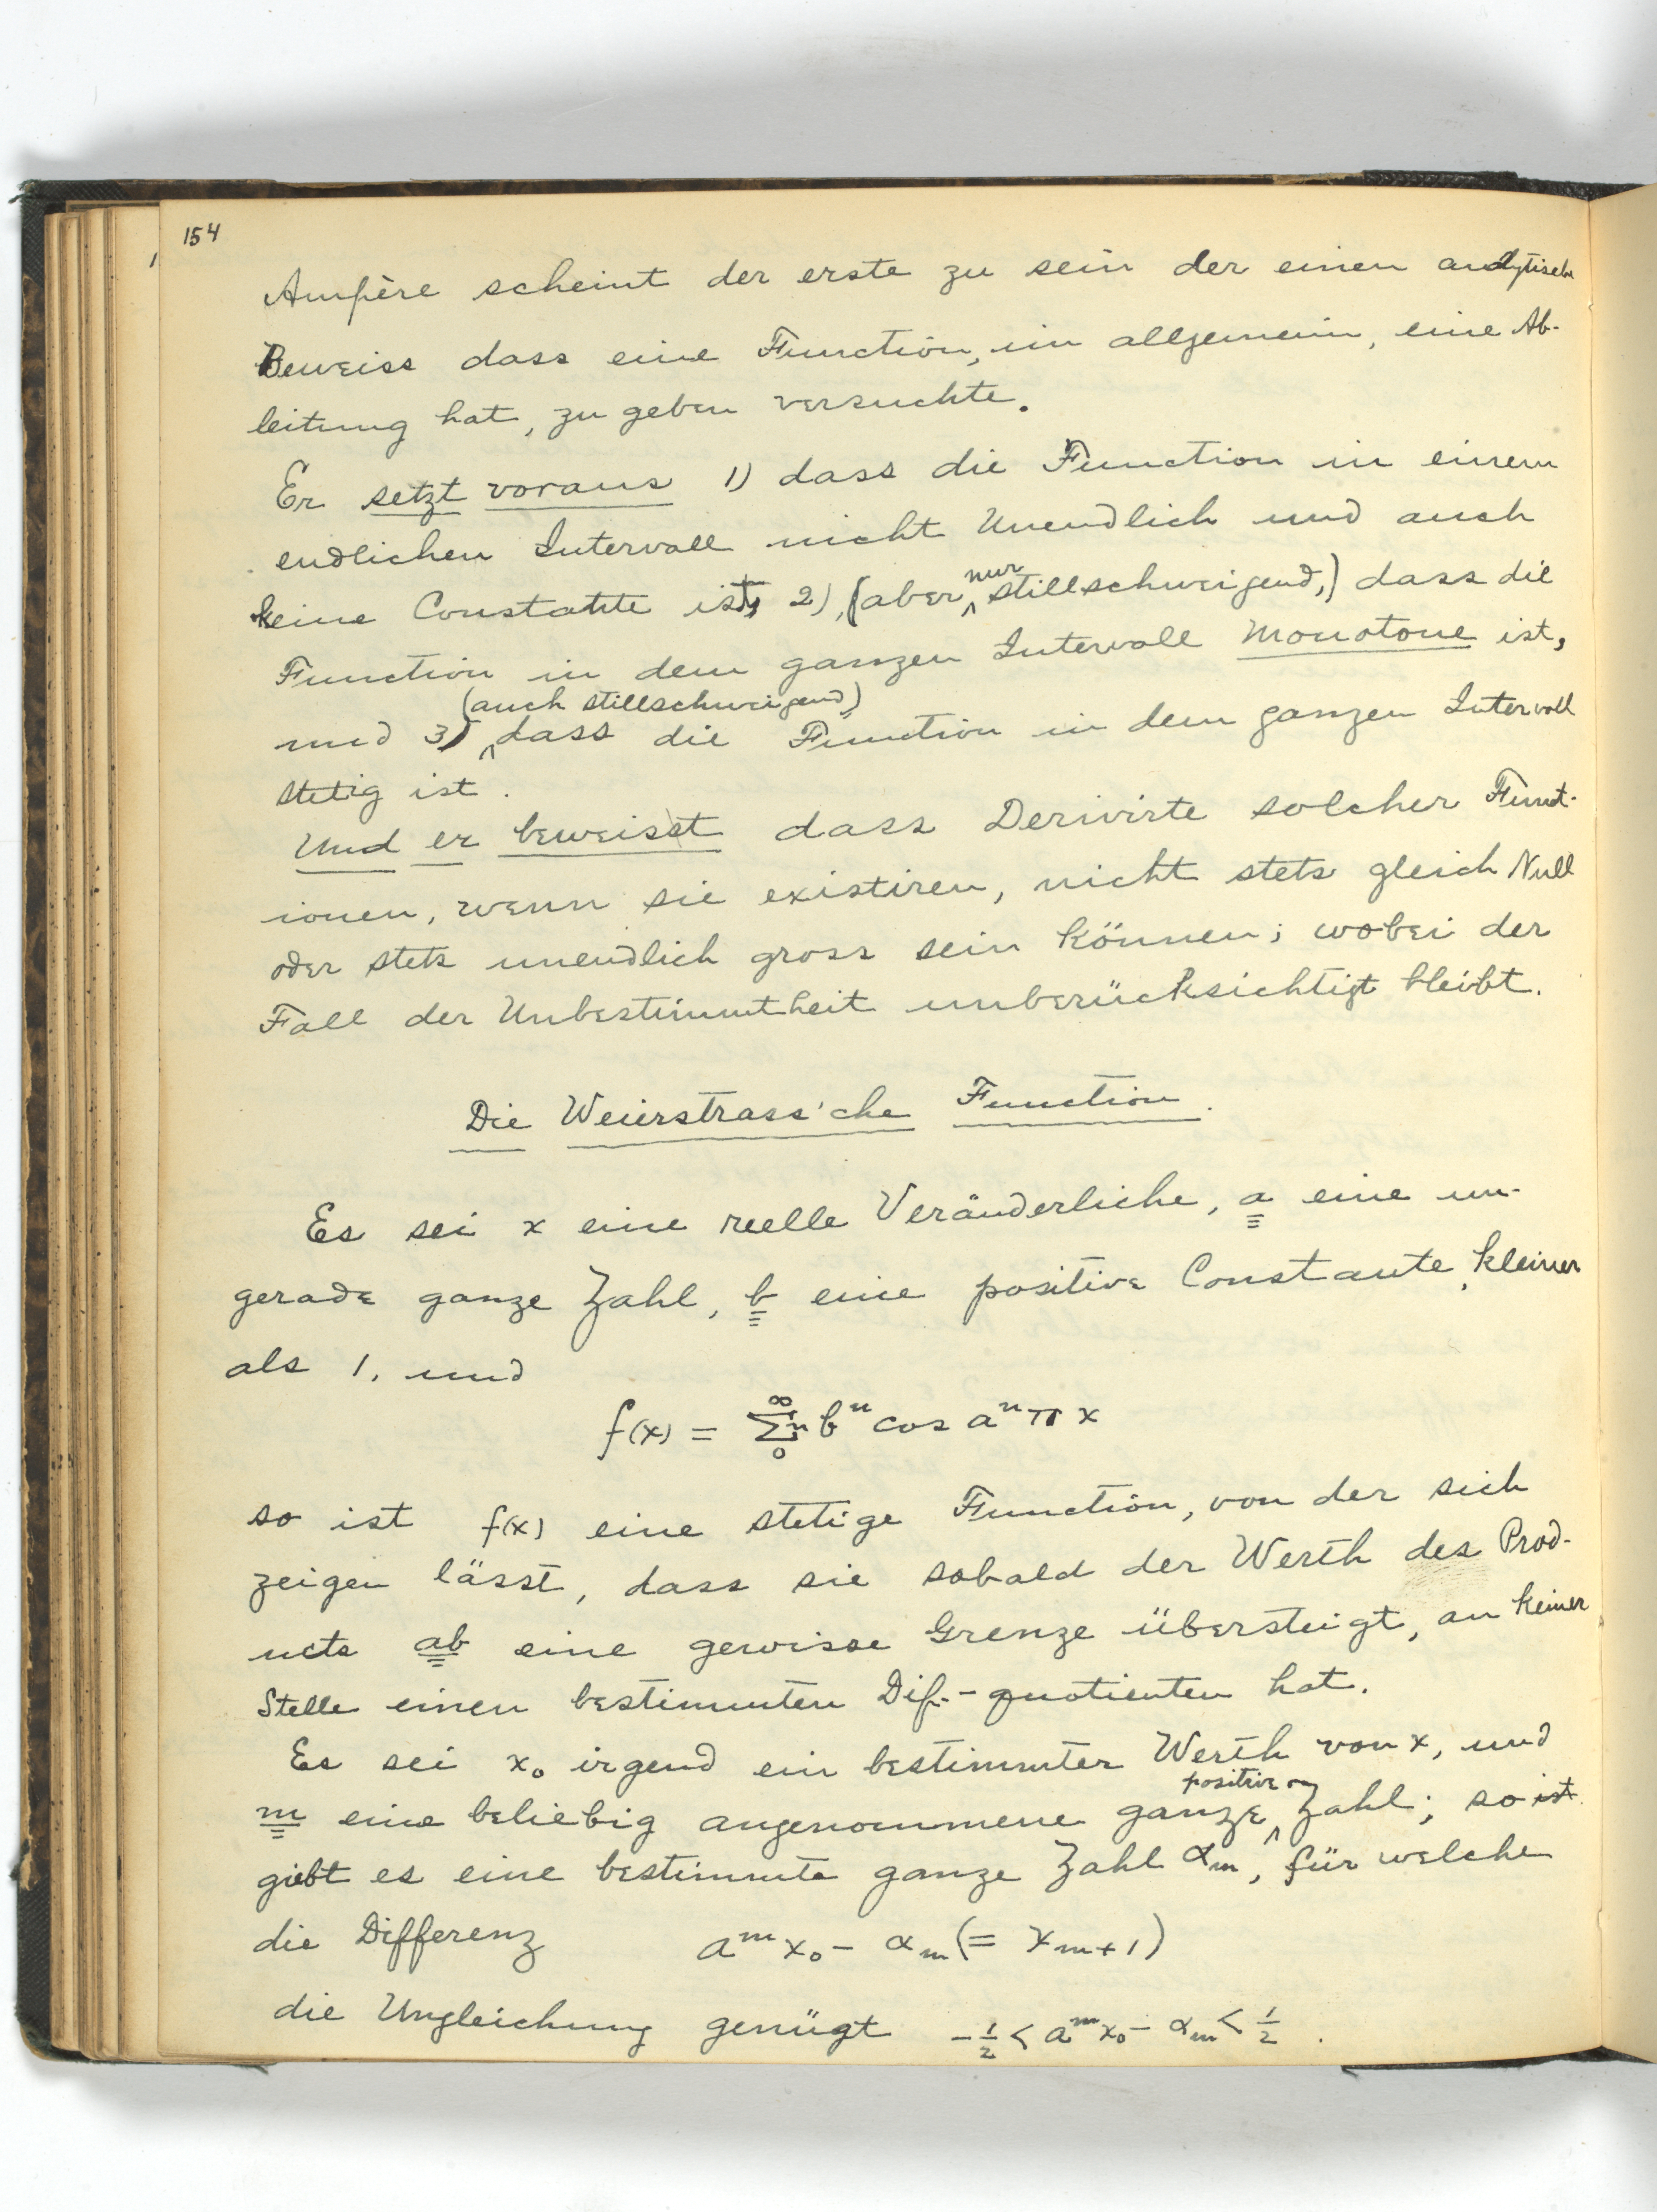 154
Ampère scheint der erste zu sein der einen analytische
Beweiss dass eine Function, im allgemein, eine Ab-
leitung hat, zu geben versuchte.
Er setzt voraus 1) dass die Function in einem
endlichen Intervall nicht Unendlich und auch
keine Constante ist, 2), (aber nur stillschweigend,) dass die
Function in dem ganzen Intervall Monotone ist,
und 3) (auch stillschweigend) dass die Function in dem ganzen Intervall
stetig ist.
Und er beweisst dass Derivirte solcher Funct-
ionen, wenn sie existiren, nicht stets gleich Null
oder stets unendlich gross sein können; wobei der
Fall der Unbestimmtheit unberücksichtigt bleibt.
Die Weierstrass'che Function.
Es sei x eine reelle Veränderliche, a eine un-
gerade ganze Zahl, b eine positive Constante, kleiner
als 1, und
f(x) = ∑ₙ₌₀^∞ bⁿ cos aⁿ π x
so ist f(x) eine stetige Function, von der sich
zeigen lässt, dass sie sobald der Werth des Prod-
ucts ab eine gewisse Grenze übersteigt, an keiner
Stelle einen bestimmten Dif.-quotienten hat.
Es sei x₀ irgend ein bestimmter Werth von x, und
m eine beliebig angenommene ganze positive Zahl; so ist
giebt es eine bestimmte ganze Zahl αₘ, für welche
die Differenz aᵐx₀ - αₘ (= xₘ₊₁)
die Ungleichung genügt -½ < aᵐx₀ - αₘ < ½.